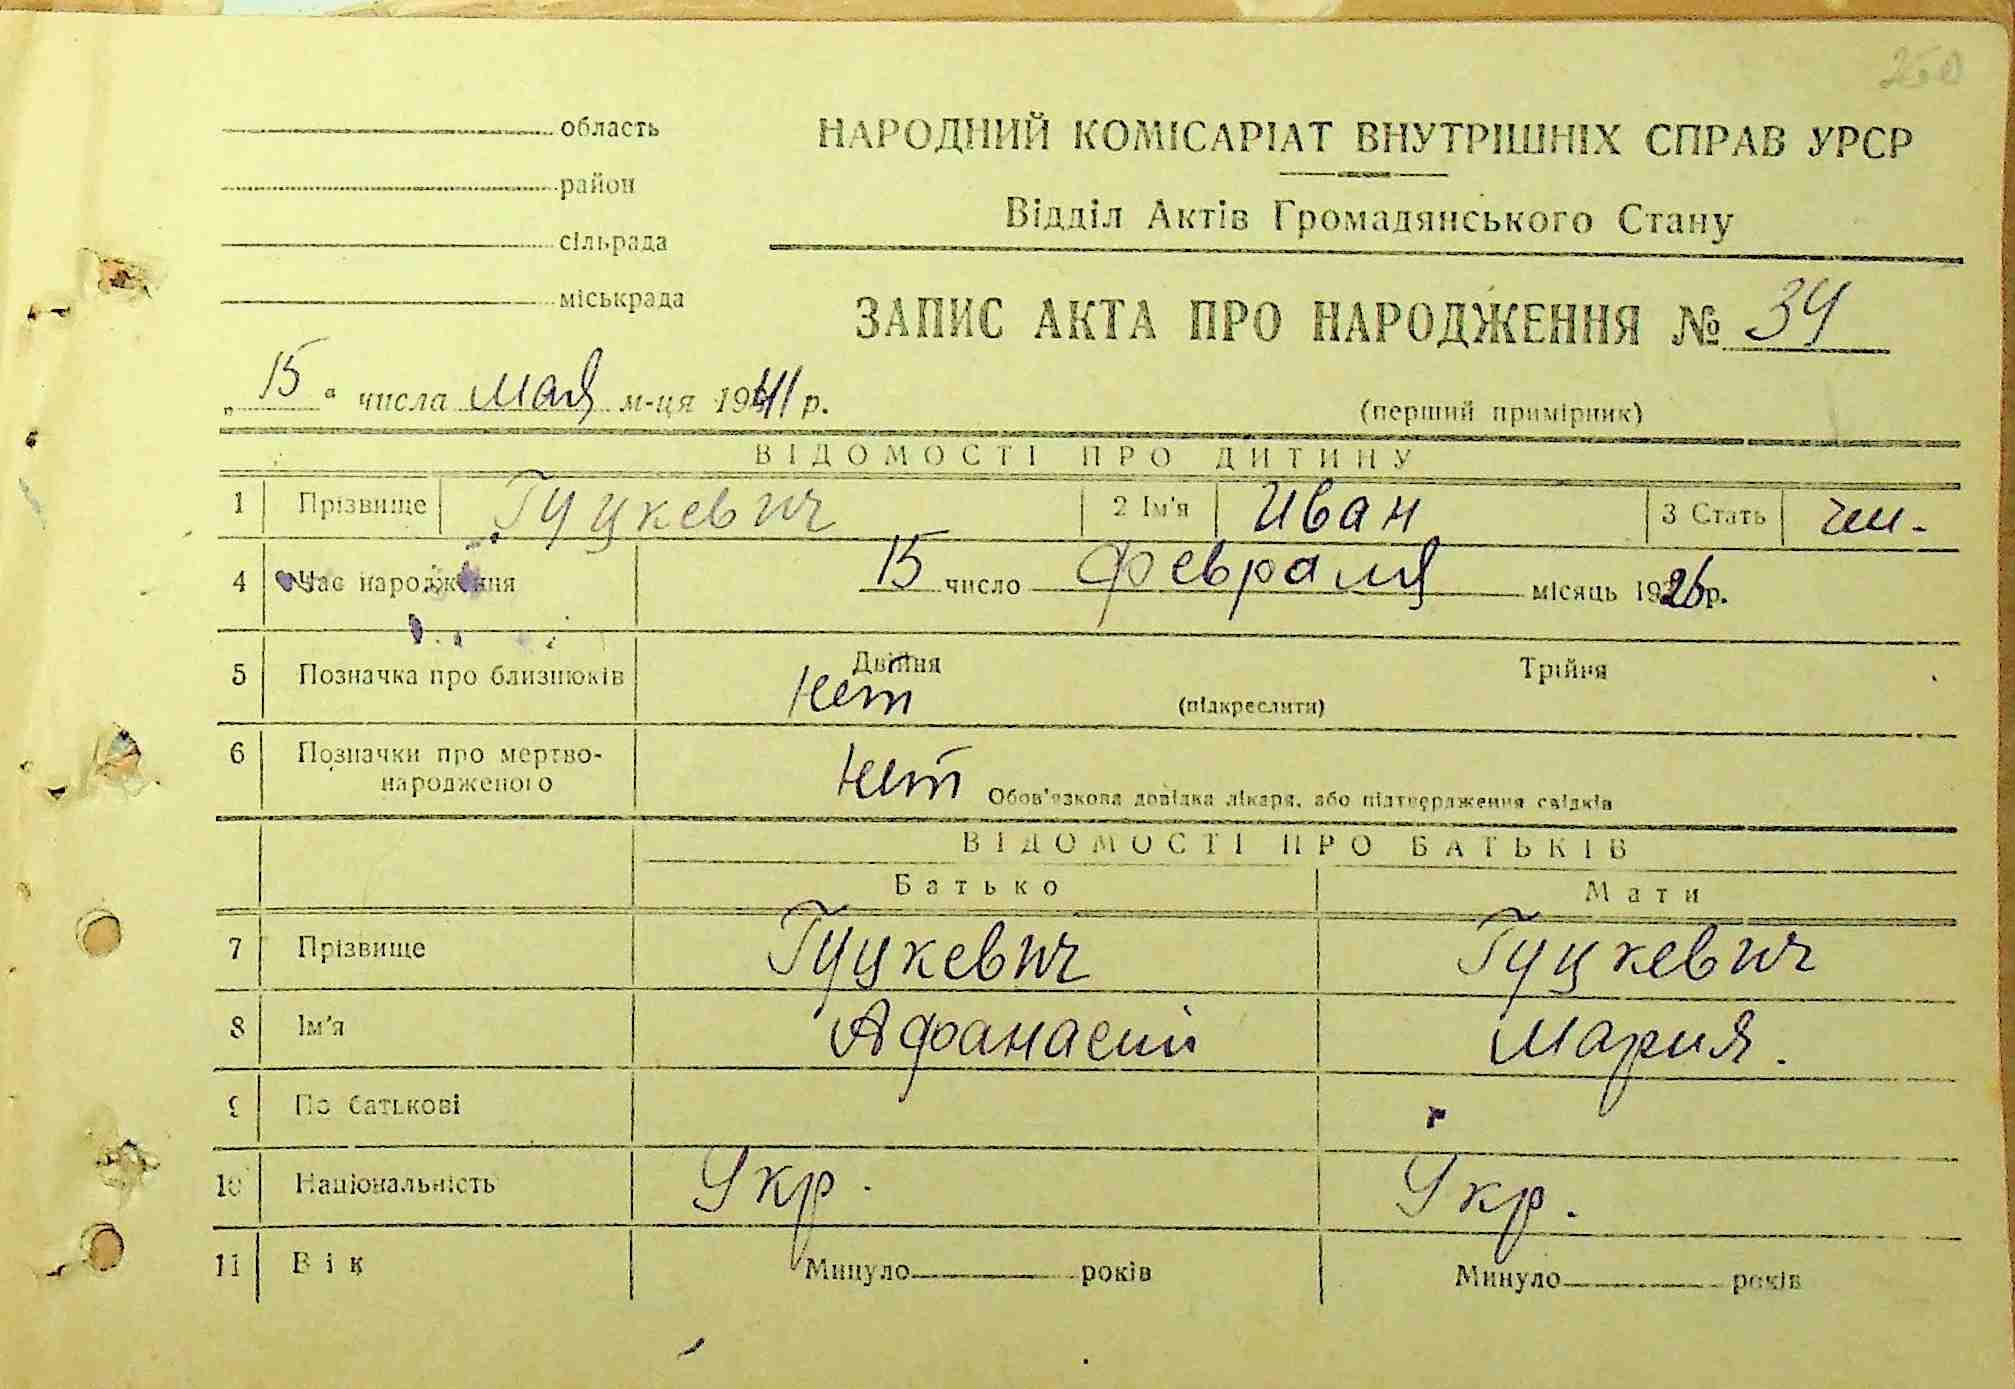 250
область
НАРОДНИЙ КОМІСАРІАТ ВНУТРІШНІХ СПРАВ УРСР
район
Відділ Актів Громадянського Стану
сільрада
міськрада
ЗАПИС АКТА ПРО НАРОДЖЕННЯ № 34
„15“ числа мая м-ця 1941 р.
(перший примірник)
ВІДОМОСТІ ПРО ДИТИНУ
1 Прізвище Гуцкевич 2 Ім'я Иван 3 Стать чш.
4 Час народження 15 число февраля місяць 1926 р.
5 Позначка про близнюків Двійня Трійня
нет (підкреслити)
6 Позначки про мертво-
народженого нет Обов'язкова довідка лікаря, або підтвердження свідків
ВІДОМОСТІ ПРО БАТЬКІВ
Батько Мати
7 Прізвище Гуцкевич Гуцкевич
8 Ім'я Афанасий Мария.
9 По батькові
10 Національність Укр. Укр.
11 Вік Минуло років Минуло років